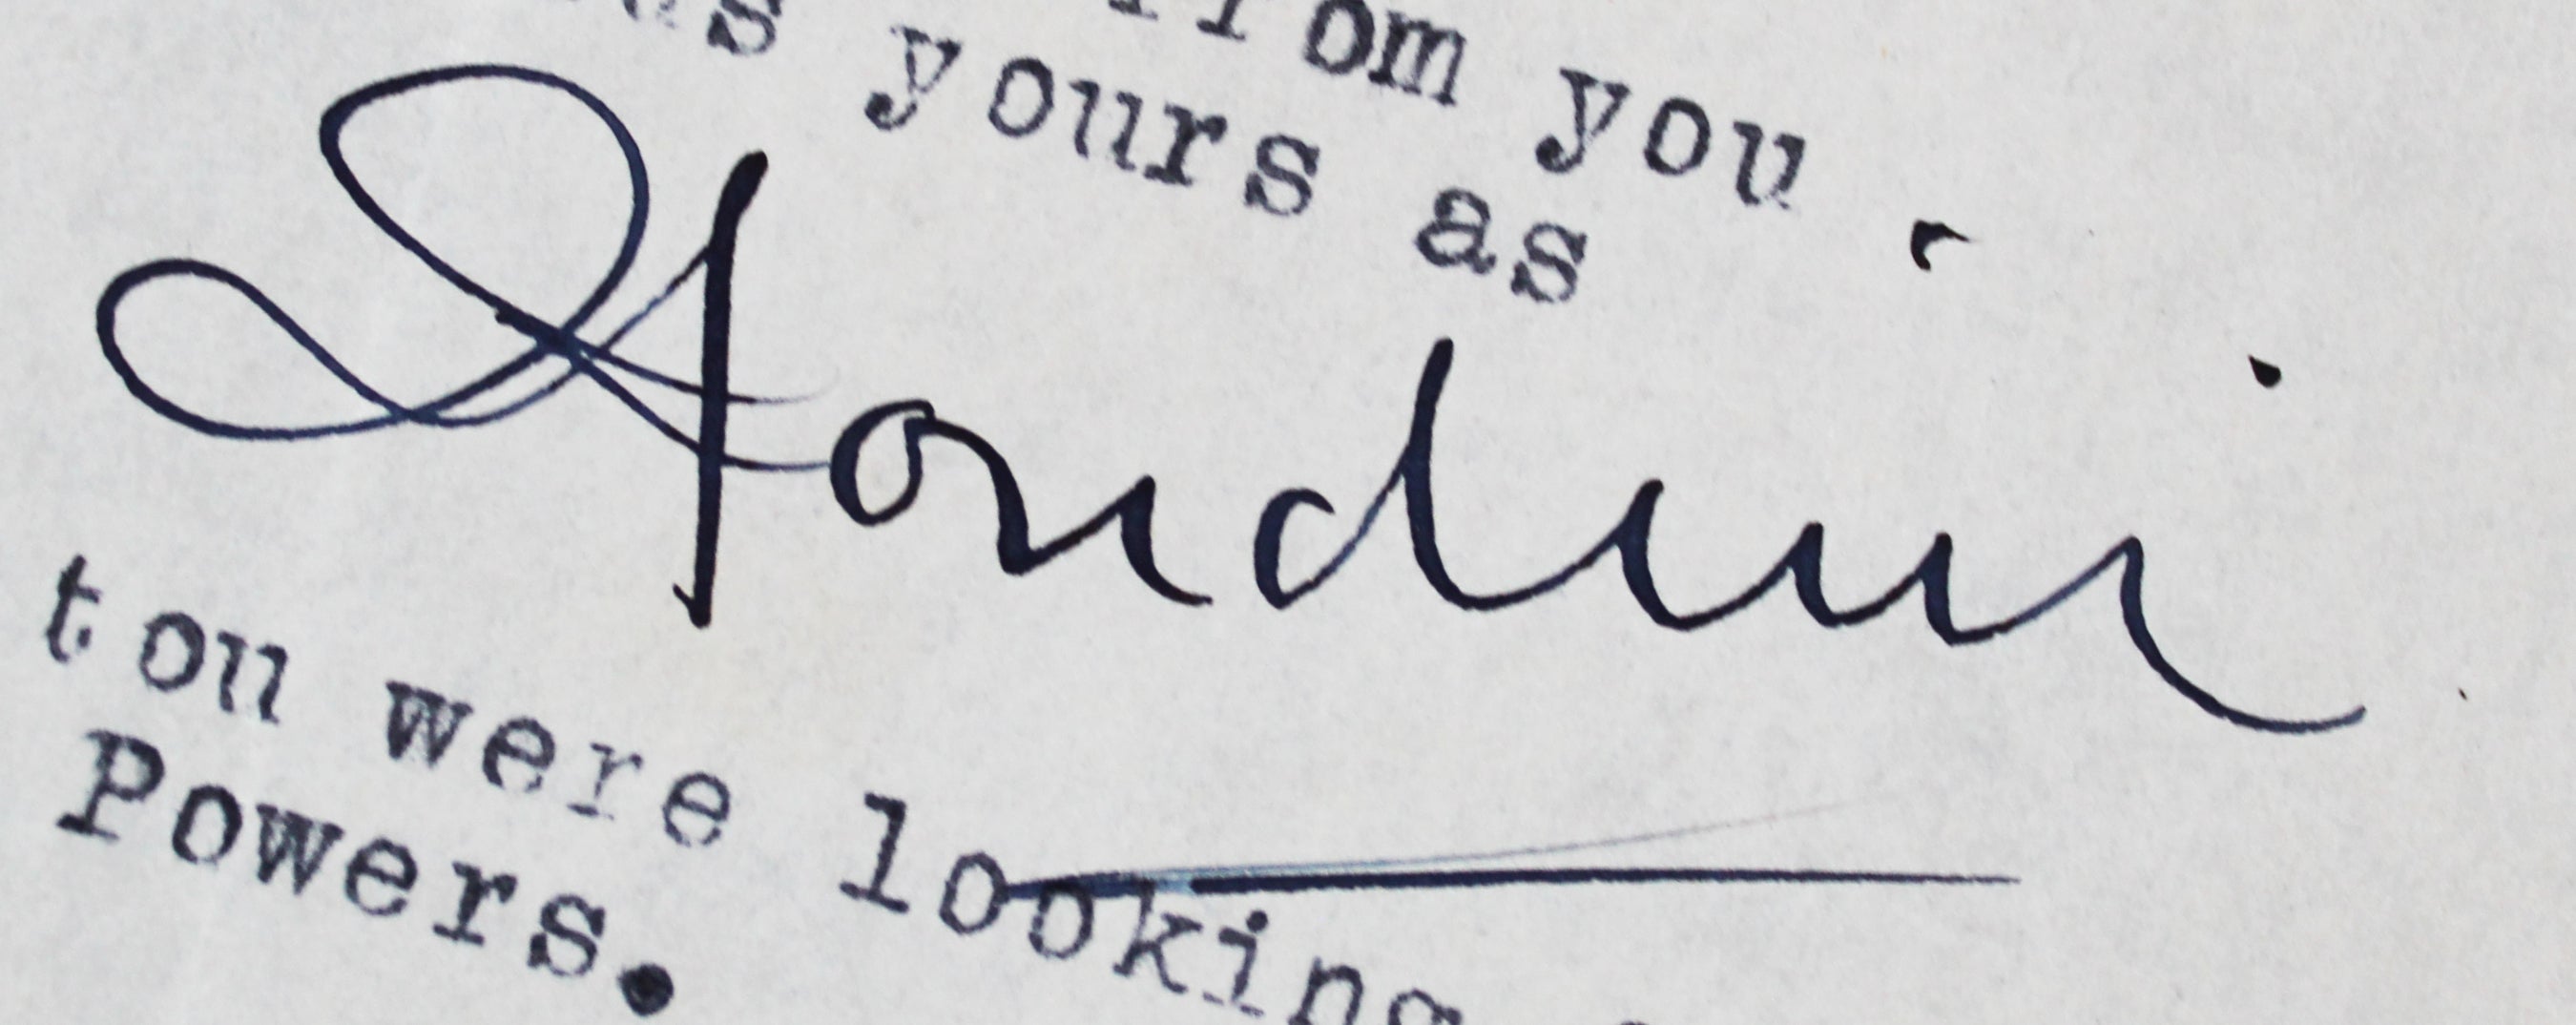 from you
yours as
Houdini
ton were looking
Powers.